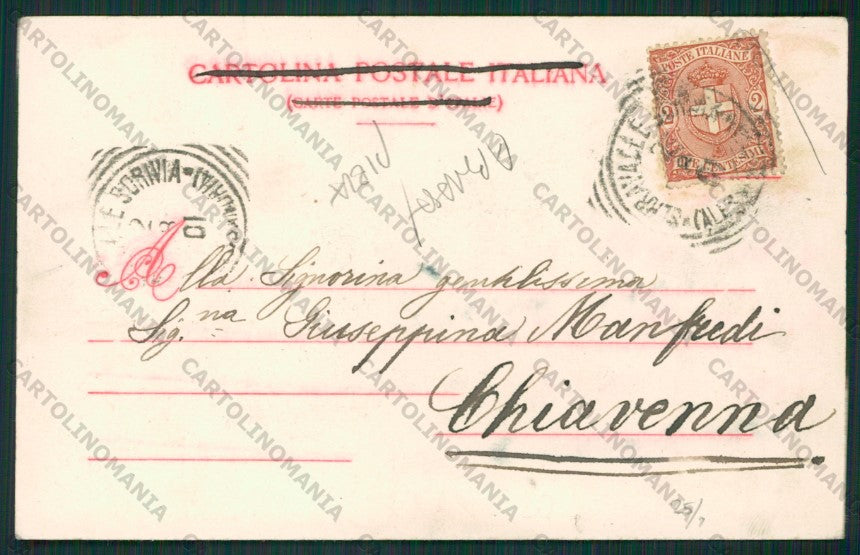 CARTOLINA POSTALE ITALIANA
(CARTE POSTALE D'ITALIE)
POSTE ITALIANE
2 2
DUE CENTESIMI
SERRAVALLE
(ALES
ALE SCRIVIA
01
Alla Signorina gentilissima
Sig.na Giuseppina Manfredi
Chiavenna
CARTOLINOMANIA